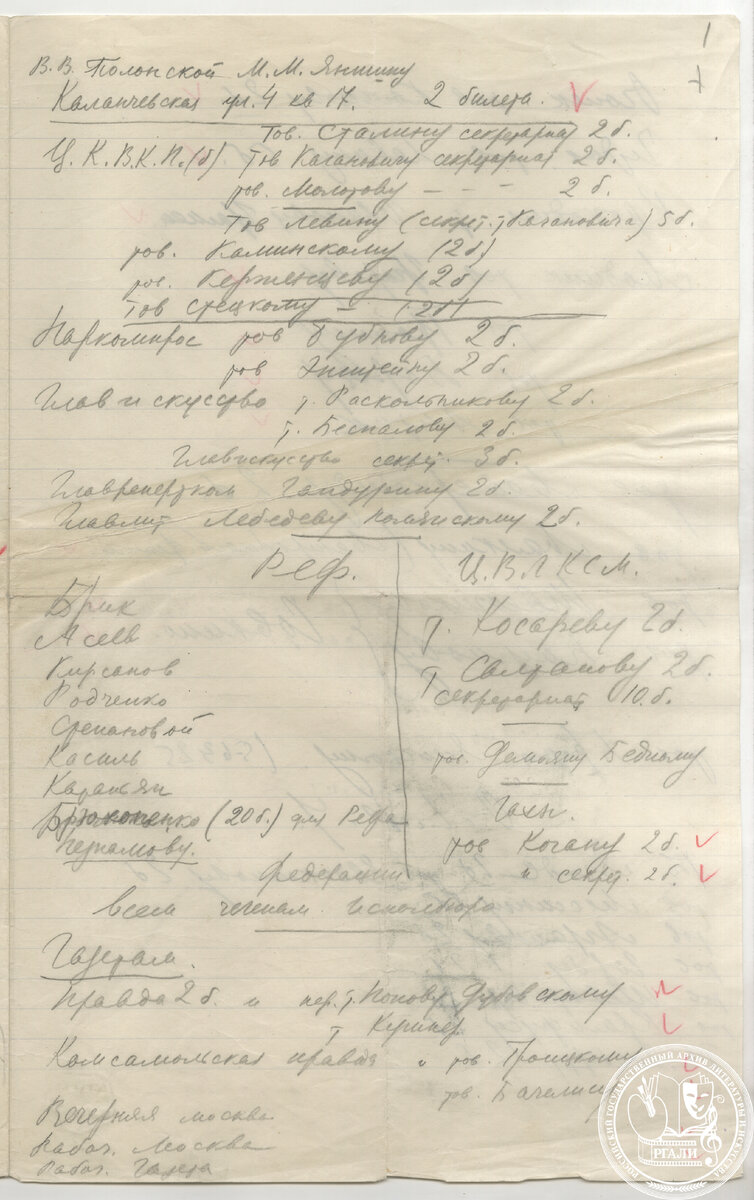 1
В. В. Полонской М. М. Яншину
Каланчевская ул. 4 кв 17. 2 билета.
Тов. Сталину секретариат 2 б.
Ц. К. В. К. П. (б) Тов Кагановичу секретариат 2 б.
тов. Молотову – – – 2 б.
Тов Левину (секрет. т Кагановича) 5 б.
тов. Каминскому (2 б)
тов. Керженцеву (2 б)
Тов Стецкому – (2 б)
Наркомпрос тов Бубнову 2 б.
тов Эпштейну 2 б.
Главискусство т. Раскольникову 2 б.
т. Беспалову 2 б.
Главискусство секрет. 3 б.
Главрепертком Гандурину 2 б.
Главлит Лебедеву Полянскому 2 б.
Реф.
Брик
Асеев
Кирсанов
Родченко
Степановой
Кассиль
Катанян
Брюханенко (20 б.) для Рефа
Незнамову.
Ц. В Л К С М.
т. Косареву 2 б.
т Салтанову 2 б.
секретариат 10. б.
тов. Демьяну Бедному
Гахн.
тов Когану 2 б.
" секрет. 2 б.
Федерации
всем членам исполбюро
Газетам.
Правда 2 б. и пер. т. Попову Дубовскому
т Кушнер
Комсамольская правда " тов. Троицкому
тов. Бачелису
Вечерняя москва
Рабоч. Москва
Рабоч. Газета
РОССИЙСКИЙ ГОСУДАРСТВЕННЫЙ АРХИВ ЛИТЕРАТУРЫ И ИСКУССТВА
РГАЛИ